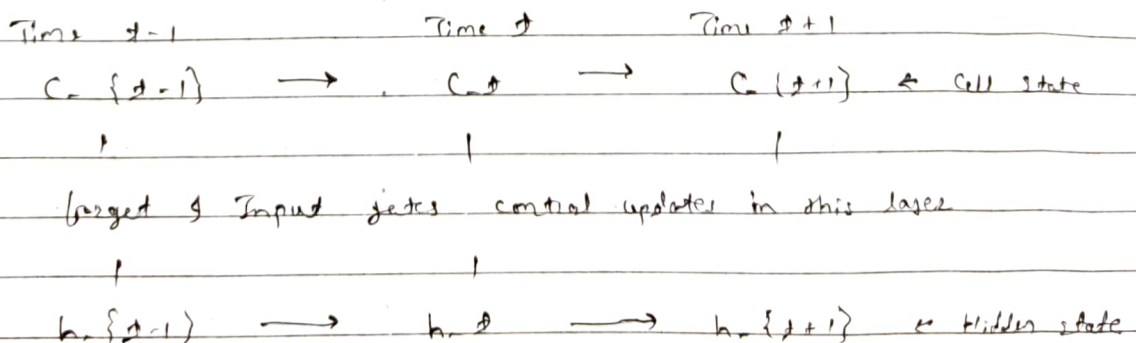 Time t-1 Time t Time t+1
C_{t-1} → C_t → C_{t+1} ← Cell state
| | |
forget & Input gates control updates in this layer
| |
h_{t-1} → h_t → h_{t+1} ← Hidden state